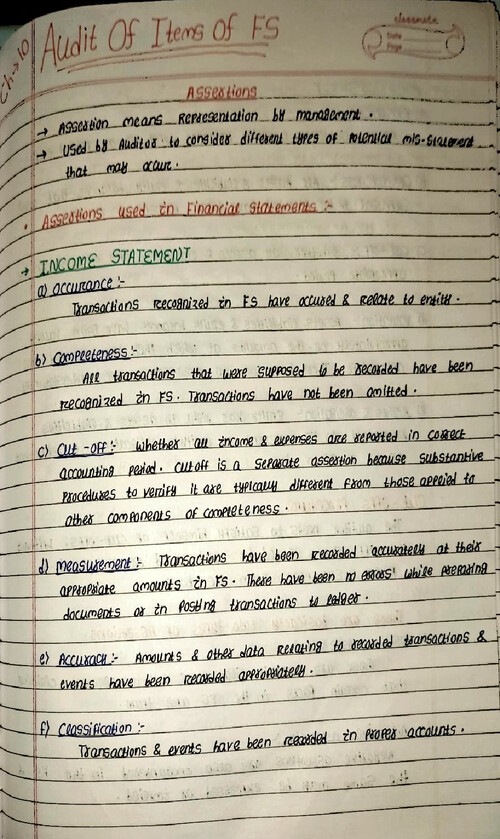 Ch→10
Audit Of Items Of FS
classmate
Date
Page
Assertions
→ Assertion means Representation by management.
→ Used by Auditor to consider different types of Potential mis-statement
that may occur.
• Assertions used in Financial Statements :-
→ INCOME STATEMENT
a) occurance :-
Transactions recognized in FS have occured & relate to entity.
b) Completeness :-
All transactions that were supposed to be recorded have been
recognized in FS. Transactions have not been omitted.
c) Cut-off :- Whether all income & expenses are reported in correct
accounting period. Cutoff is a separate assertion because substantive
Procedures to verify it are typically different from those applied to
other components of completeness.
d) Measurement :- Transactions have been recorded accurately at their
appropriate amounts in FS. There have been no errors while preparing
documents or in Posting transactions to ledger.
e) Accuracy :- Amounts & other data relating to recorded transactions &
events have been recorded appropriately.
f) Classification :-
Transactions & events have been recorded in proper accounts.